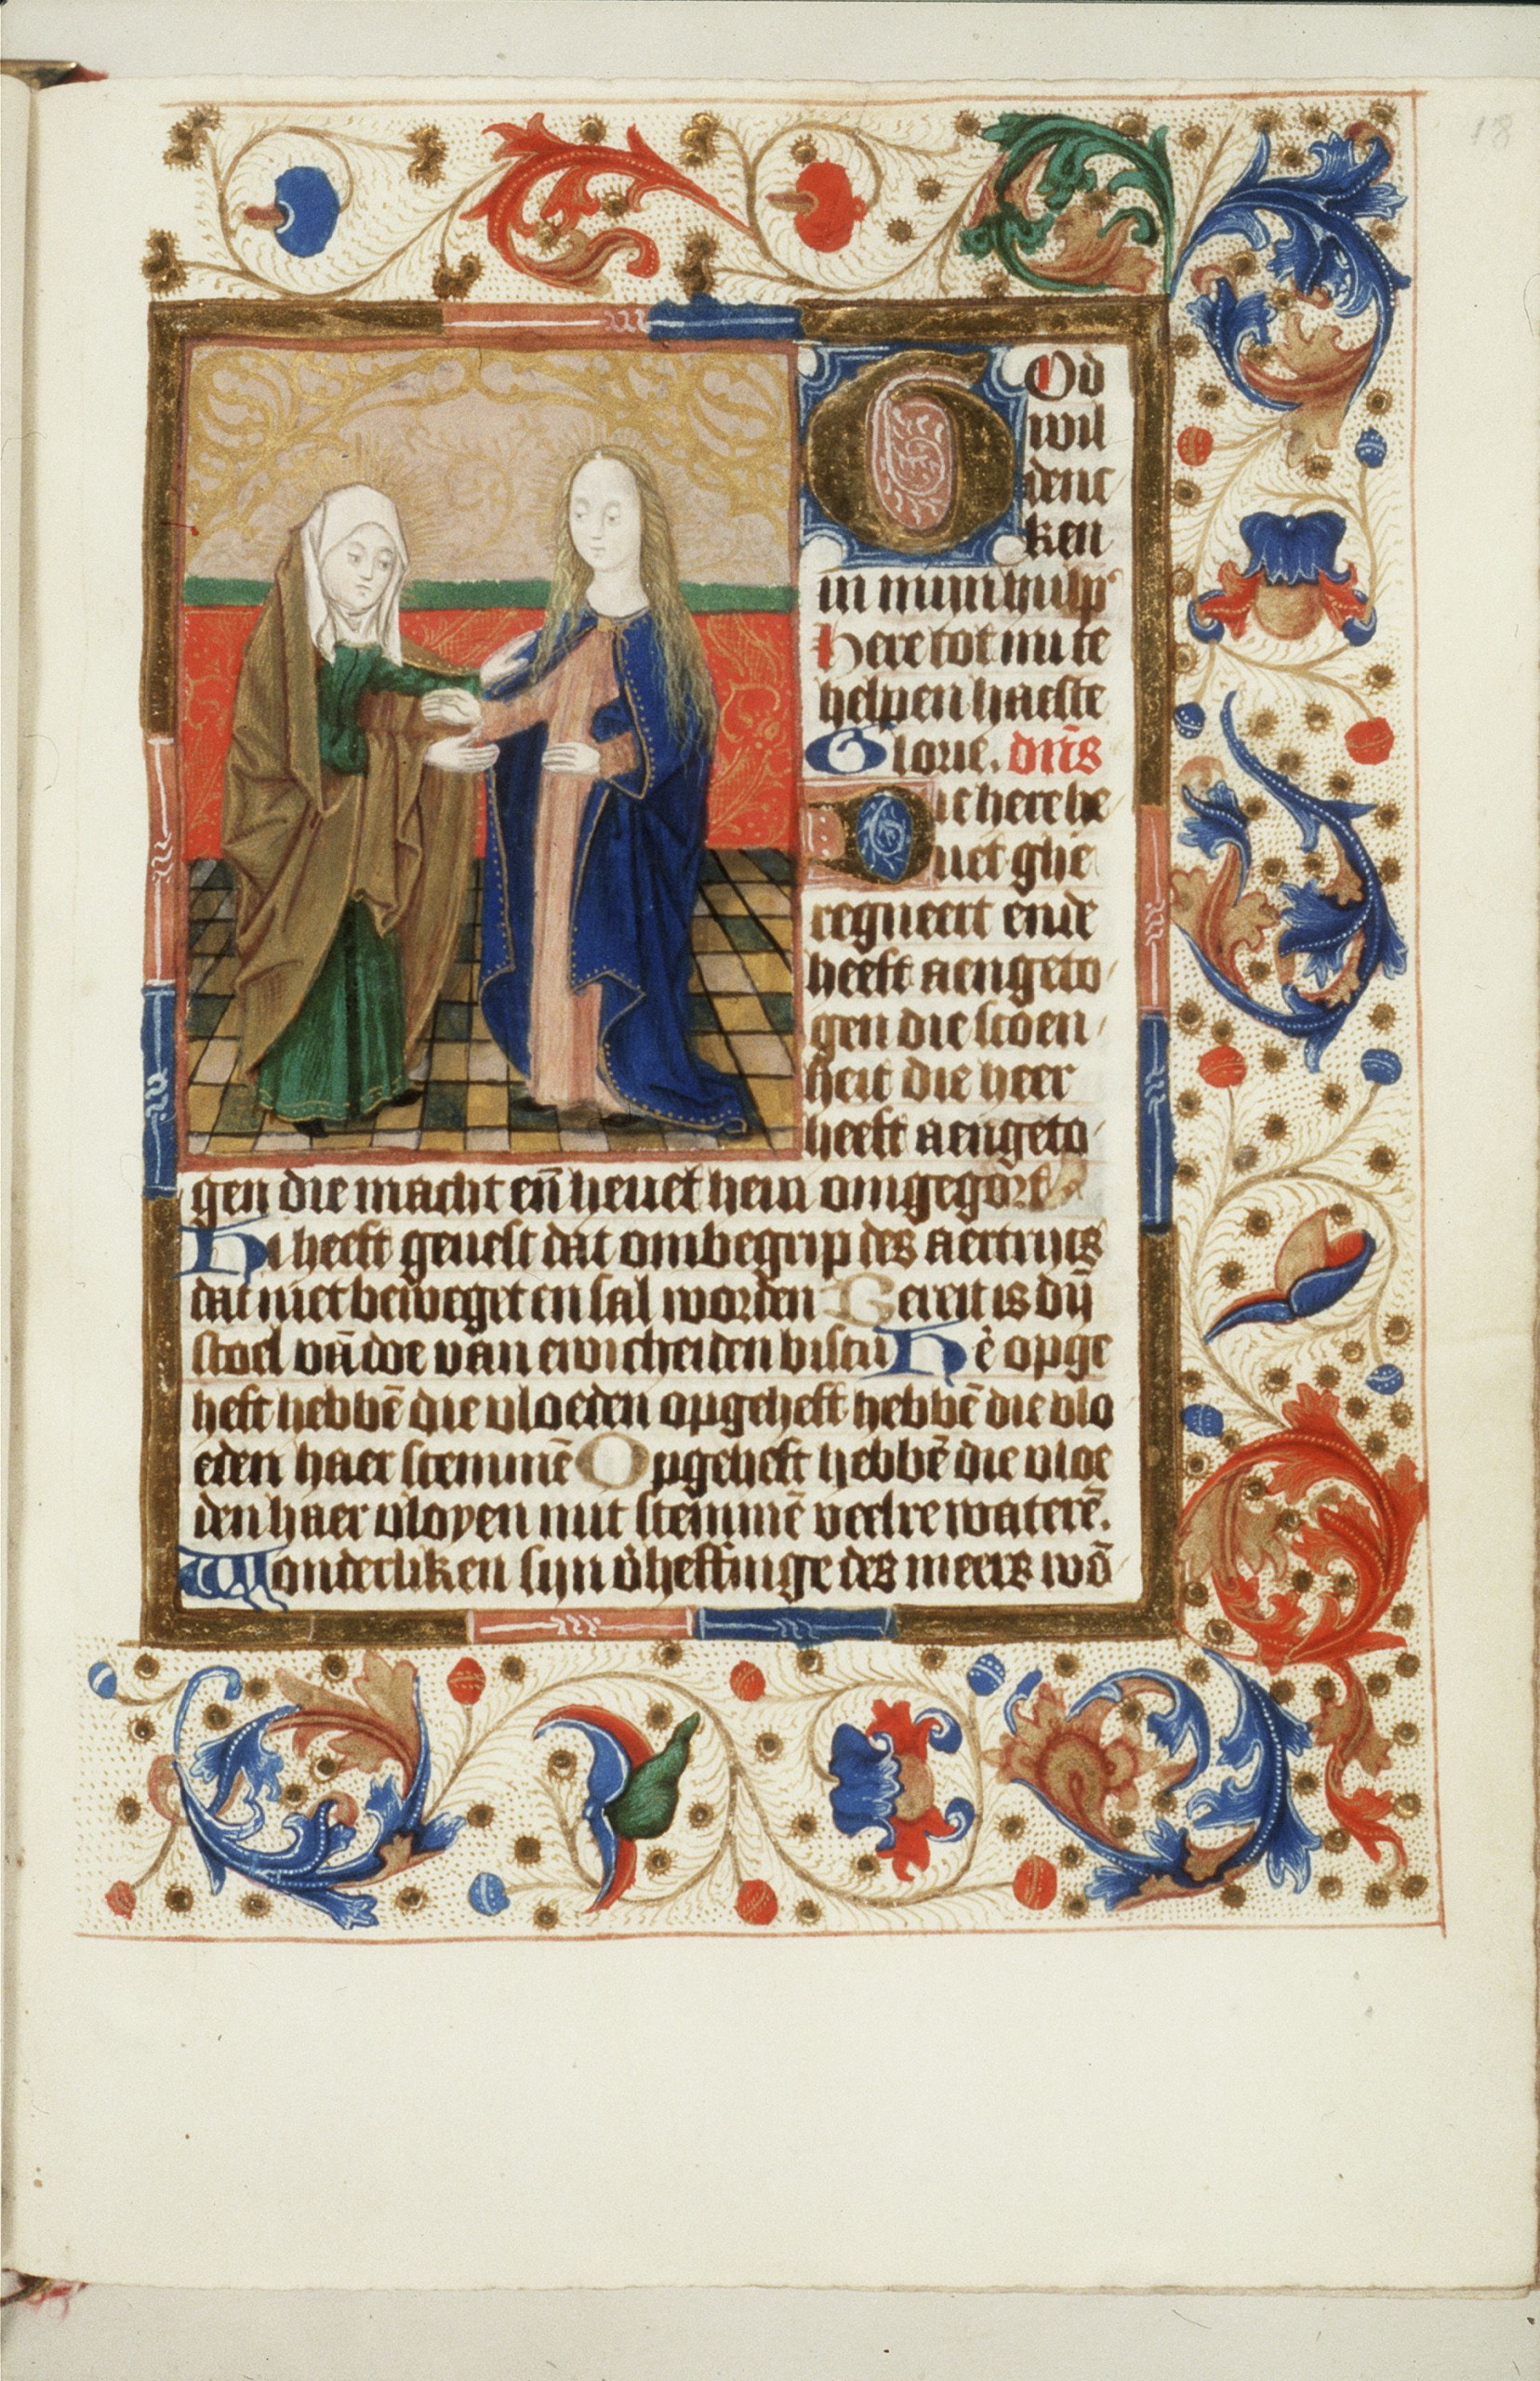 18
God
wil
denc
ken
in mijn hulp
Here tot mi te
helpen haeste
Glorie. dn̄s
Die here he
uet ghe
regneert ende
heeft aengeto
gen die scoen
heit die heer
heeft aengeto
gen die macht en̄ heuet hem omgegort
Hi heeft geuest dat ombegrip des aertrijcs
dat niet beweget en sal worden Bereit is dij
stoel vā doe van ewicheiden bistu Hē opge
heft hebbē die vloeden opgeheft hebbē die vlo
eden haer stemmē Opgeheft hebbē die vloe
den haer vloyen mit stemmē veelre waterē.
Wonderliken sijn v̄heffinge des meers wō